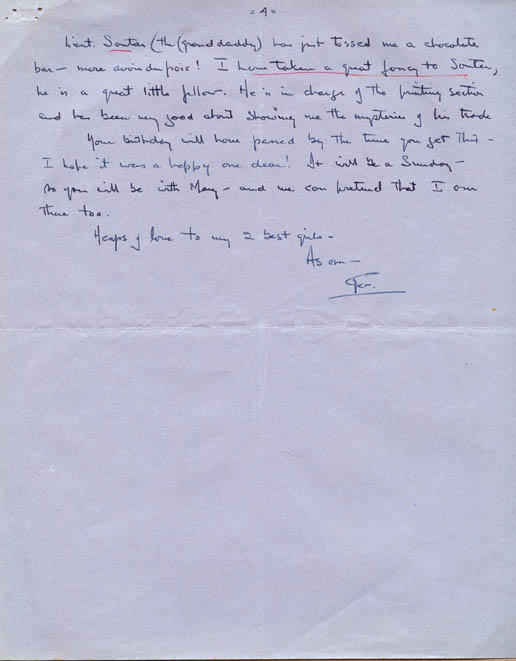 - 4 -
Lieut. Soutar (the (granddaddy) has just tossed me a chocolate
bar – more avoirdupois! I have taken a great fancy to Soutar,
he is a great little fellow. He is in charge of the printing section
and has been very good about showing me the mysteries of his trade
Your birthday will have passed by the time you get this –
I hope it was a happy one dear! It will be a Sunday –
so you will be with Mary – and we can pretend that I am
there too.
Heaps of love to my 2 best girls –
As ever –